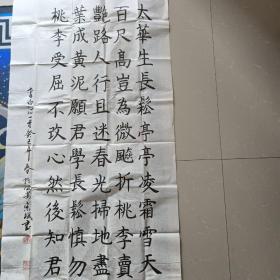 太華生長鬆亭亭凌霜雪天
百尺高豈為微飈折桃李賣
艷路人行且迷春光掃地盡
葉成黃泥願君學長鬆慎勿
桃李受屈不改心然後知君